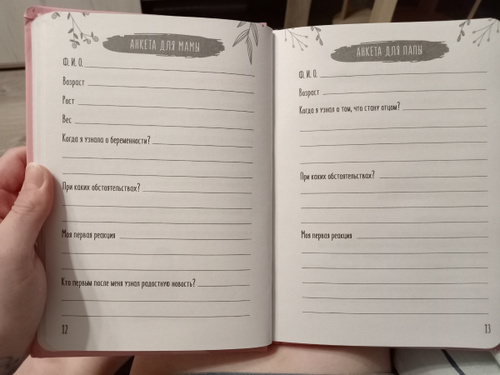 АНКЕТА ДЛЯ МАМЫ
Ф. И. О.
Возраст
Рост
Вес
Когда я узнала о беременности?
При каких обстоятельствах?
Моя первая реакция
Кто первым после меня узнал радостную новость?
12
АНКЕТА ДЛЯ ПАПЫ
Ф. И. О.
Возраст
Когда я узнал о том, что стану отцом?
При каких обстоятельствах?
Моя первая реакция
13